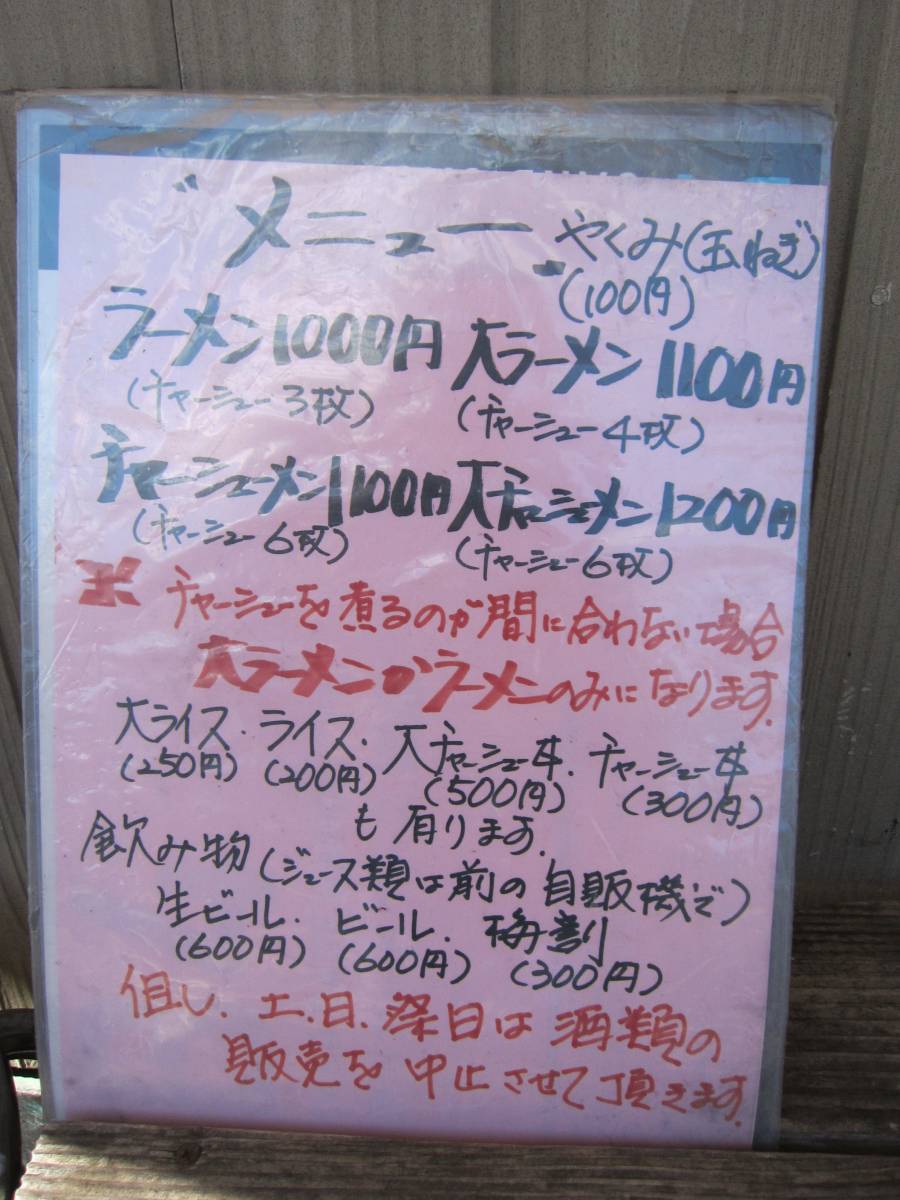 〝メニュー〟 やくみ(玉ねぎ)
(100円)
ラーメン1000円 大ラーメン1100円
(チャーシュー3枚) (チャーシュー4枚)
チャーシューメン1100円 大チャーシューメン1200円
(チャーシュー6枚) (チャーシュー6枚)
※ チャーシューを煮るのが間に合わない場合
大ラーメンかラーメンのみになります.
大ライス. ライス. 大チャーシュー丼. チャーシュー丼
(250円) (200円) (500円) (300円)
も有ります.
飲み物(ジュース類は前の自販機で)
生ビール. ビール. 梅割り
(600円) (600円) (300円)
但し. 土.日.祭日は酒類の
販売を中止させて頂きます.